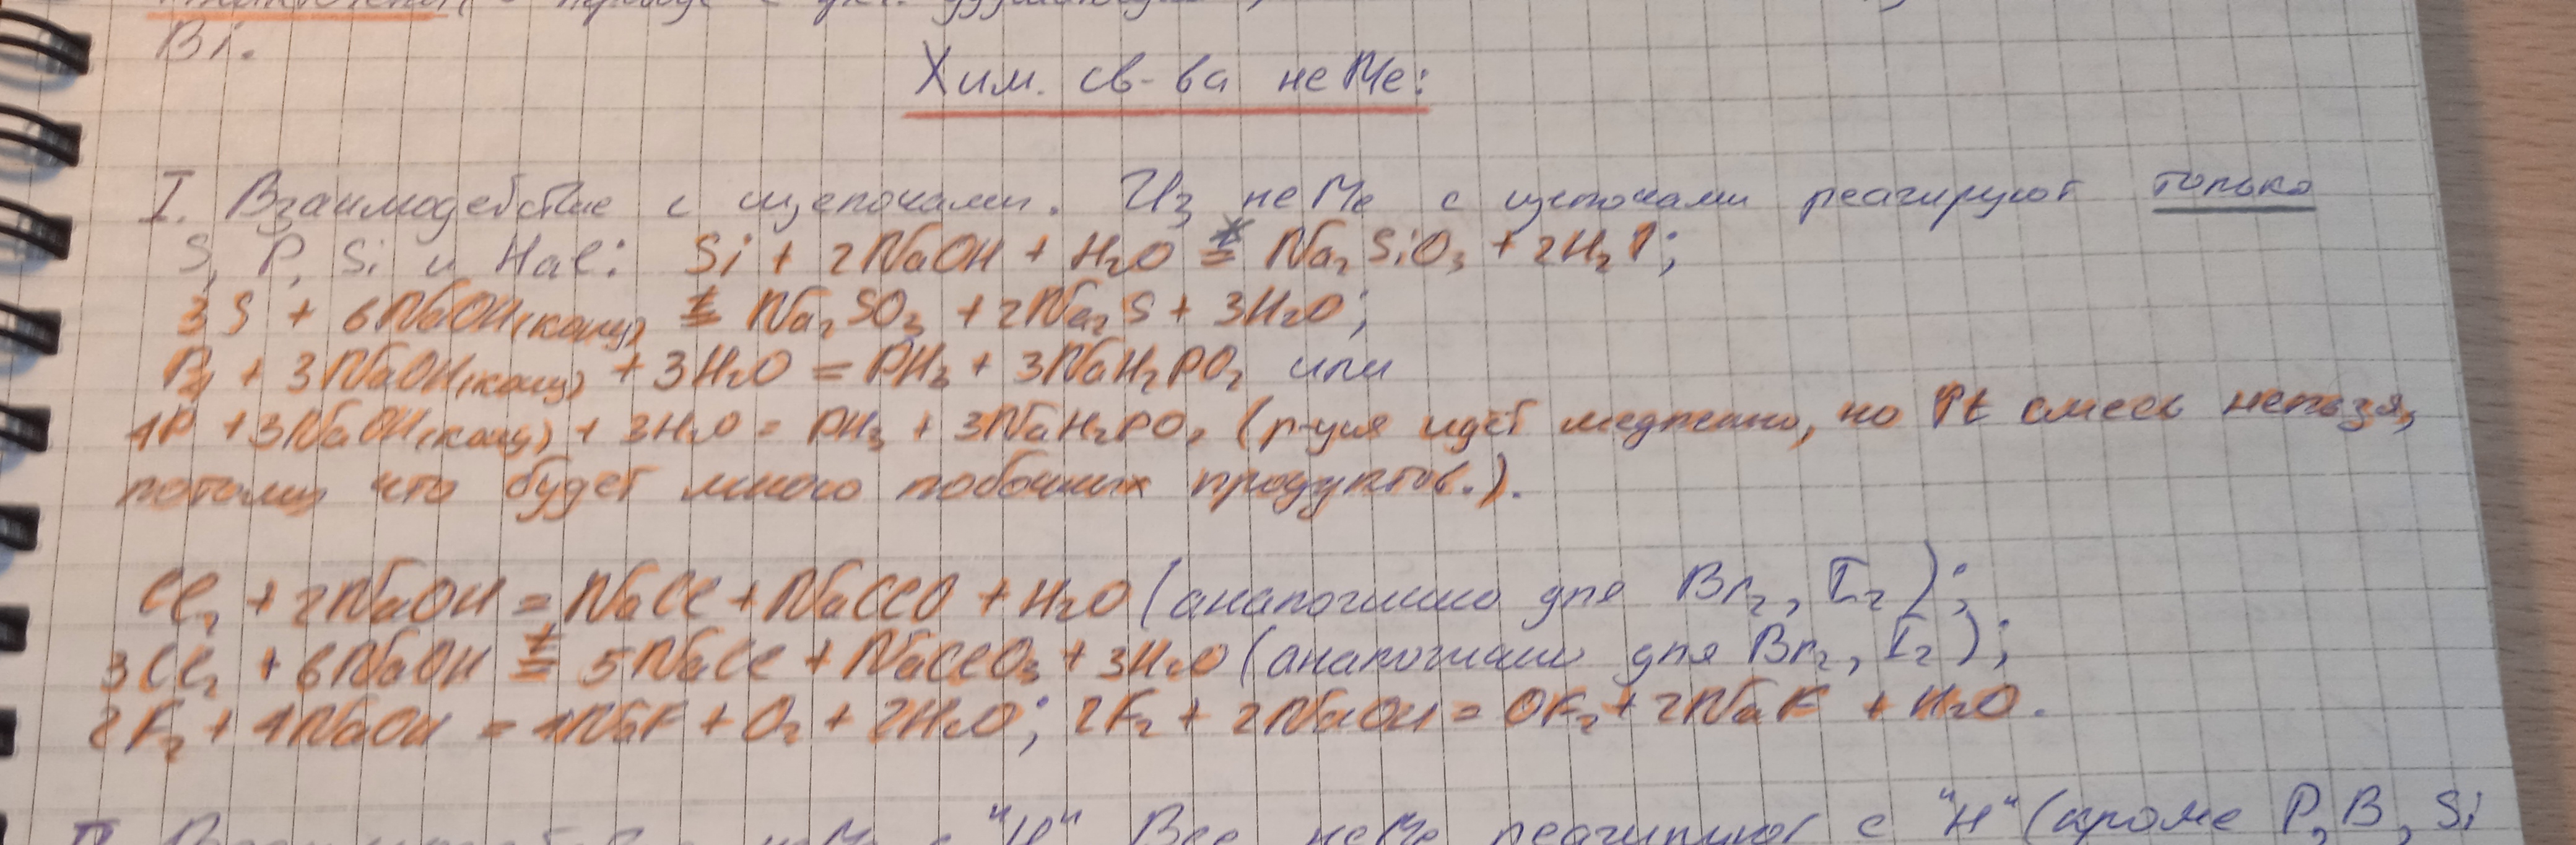 Bi.
Хим. св-ва неМе:
I. Взаимодействие с щелочами. Из неМе с щелочами реагируют только
S, P, Si и Hal: Si + 2NaOH + H₂O =ᵗ Na₂SiO₃ + 2H₂↑;
3S + 6NaOH(конц) =ᵗ Na₂SO₃ + 2Na₂S + 3H₂O;
P₄ + 3NaOH(конц) + 3H₂O = PH₃ + 3NaH₂PO₂ или
4P + 3NaOH(конц) + 3H₂O = PH₃ + 3NaH₂PO₂ (р-ция идёт медленно, но ↑t смесь нельзя,
потому что будет много побочных продуктов.).
Cl₂ + 2NaOH = NaCl + NaClO + H₂O (аналогично для Br₂, I₂);
3Cl₂ + 6NaOH =ᵗ 5NaCl + NaClO₃ + 3H₂O (аналогично для Br₂, I₂);
2F₂ + 4NaOH = 4NaF + O₂ + 2H₂O; 2F₂ + 2NaOH = OF₂ + 2NaF + H₂O.
"H" Все неМе реагируют с "H" (кроме P, B, Si